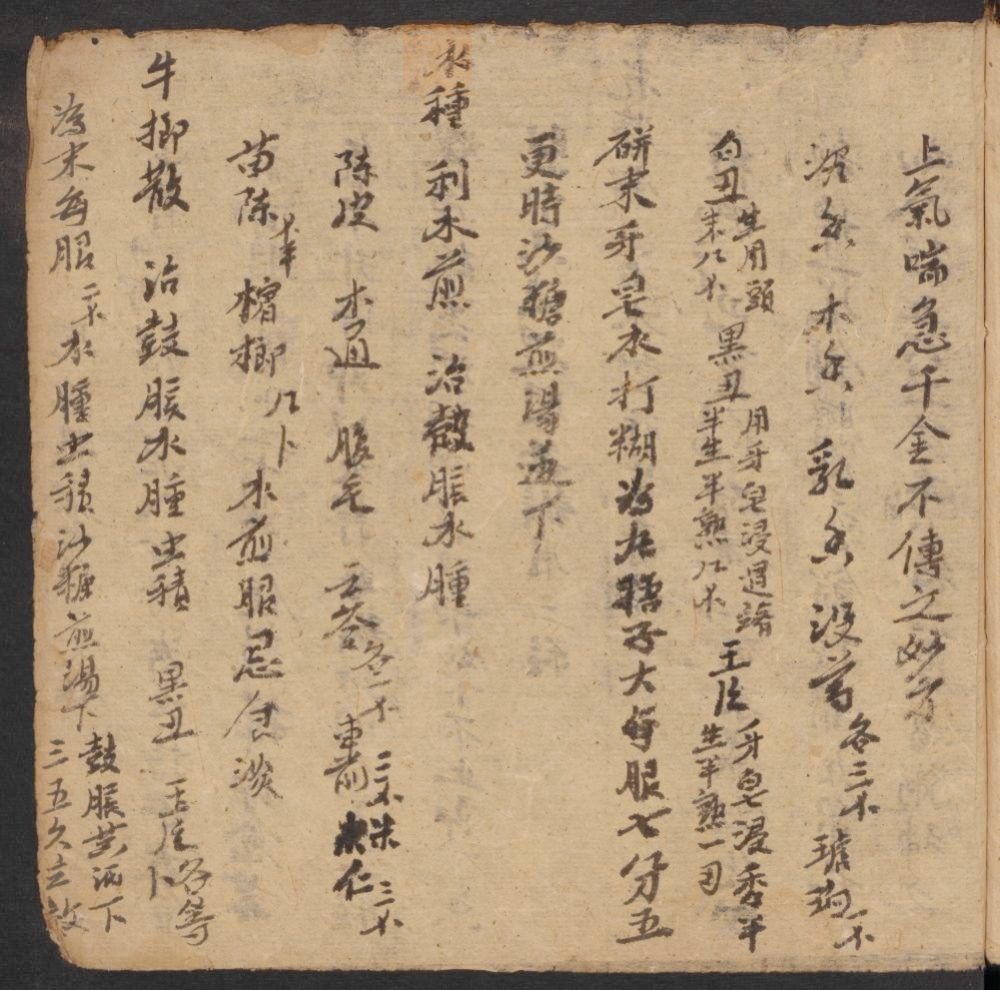 上氣喘急千金不傳之妙方
沉香 木香 乳香 沒藥各三 琥珀一
白丑生用頭末 黑丑用牙皂浸過半生半熟 牙皂浸香半生半熟一
研末牙皂水打糊為丸梧子大每服七分五
更時沙糖煎湯送下
水種 利水煎 治鼓脹水腫
陳皮 木通 腹毛 云苓各二 車前 仁
苗陳 檳榔 水煎服忌食淡
牛榔散 治鼓脹水腫虫積 黑丑 各等
為末每服 水腫虫積沙糖煎湯下 鼓脹 酒下三五久立效